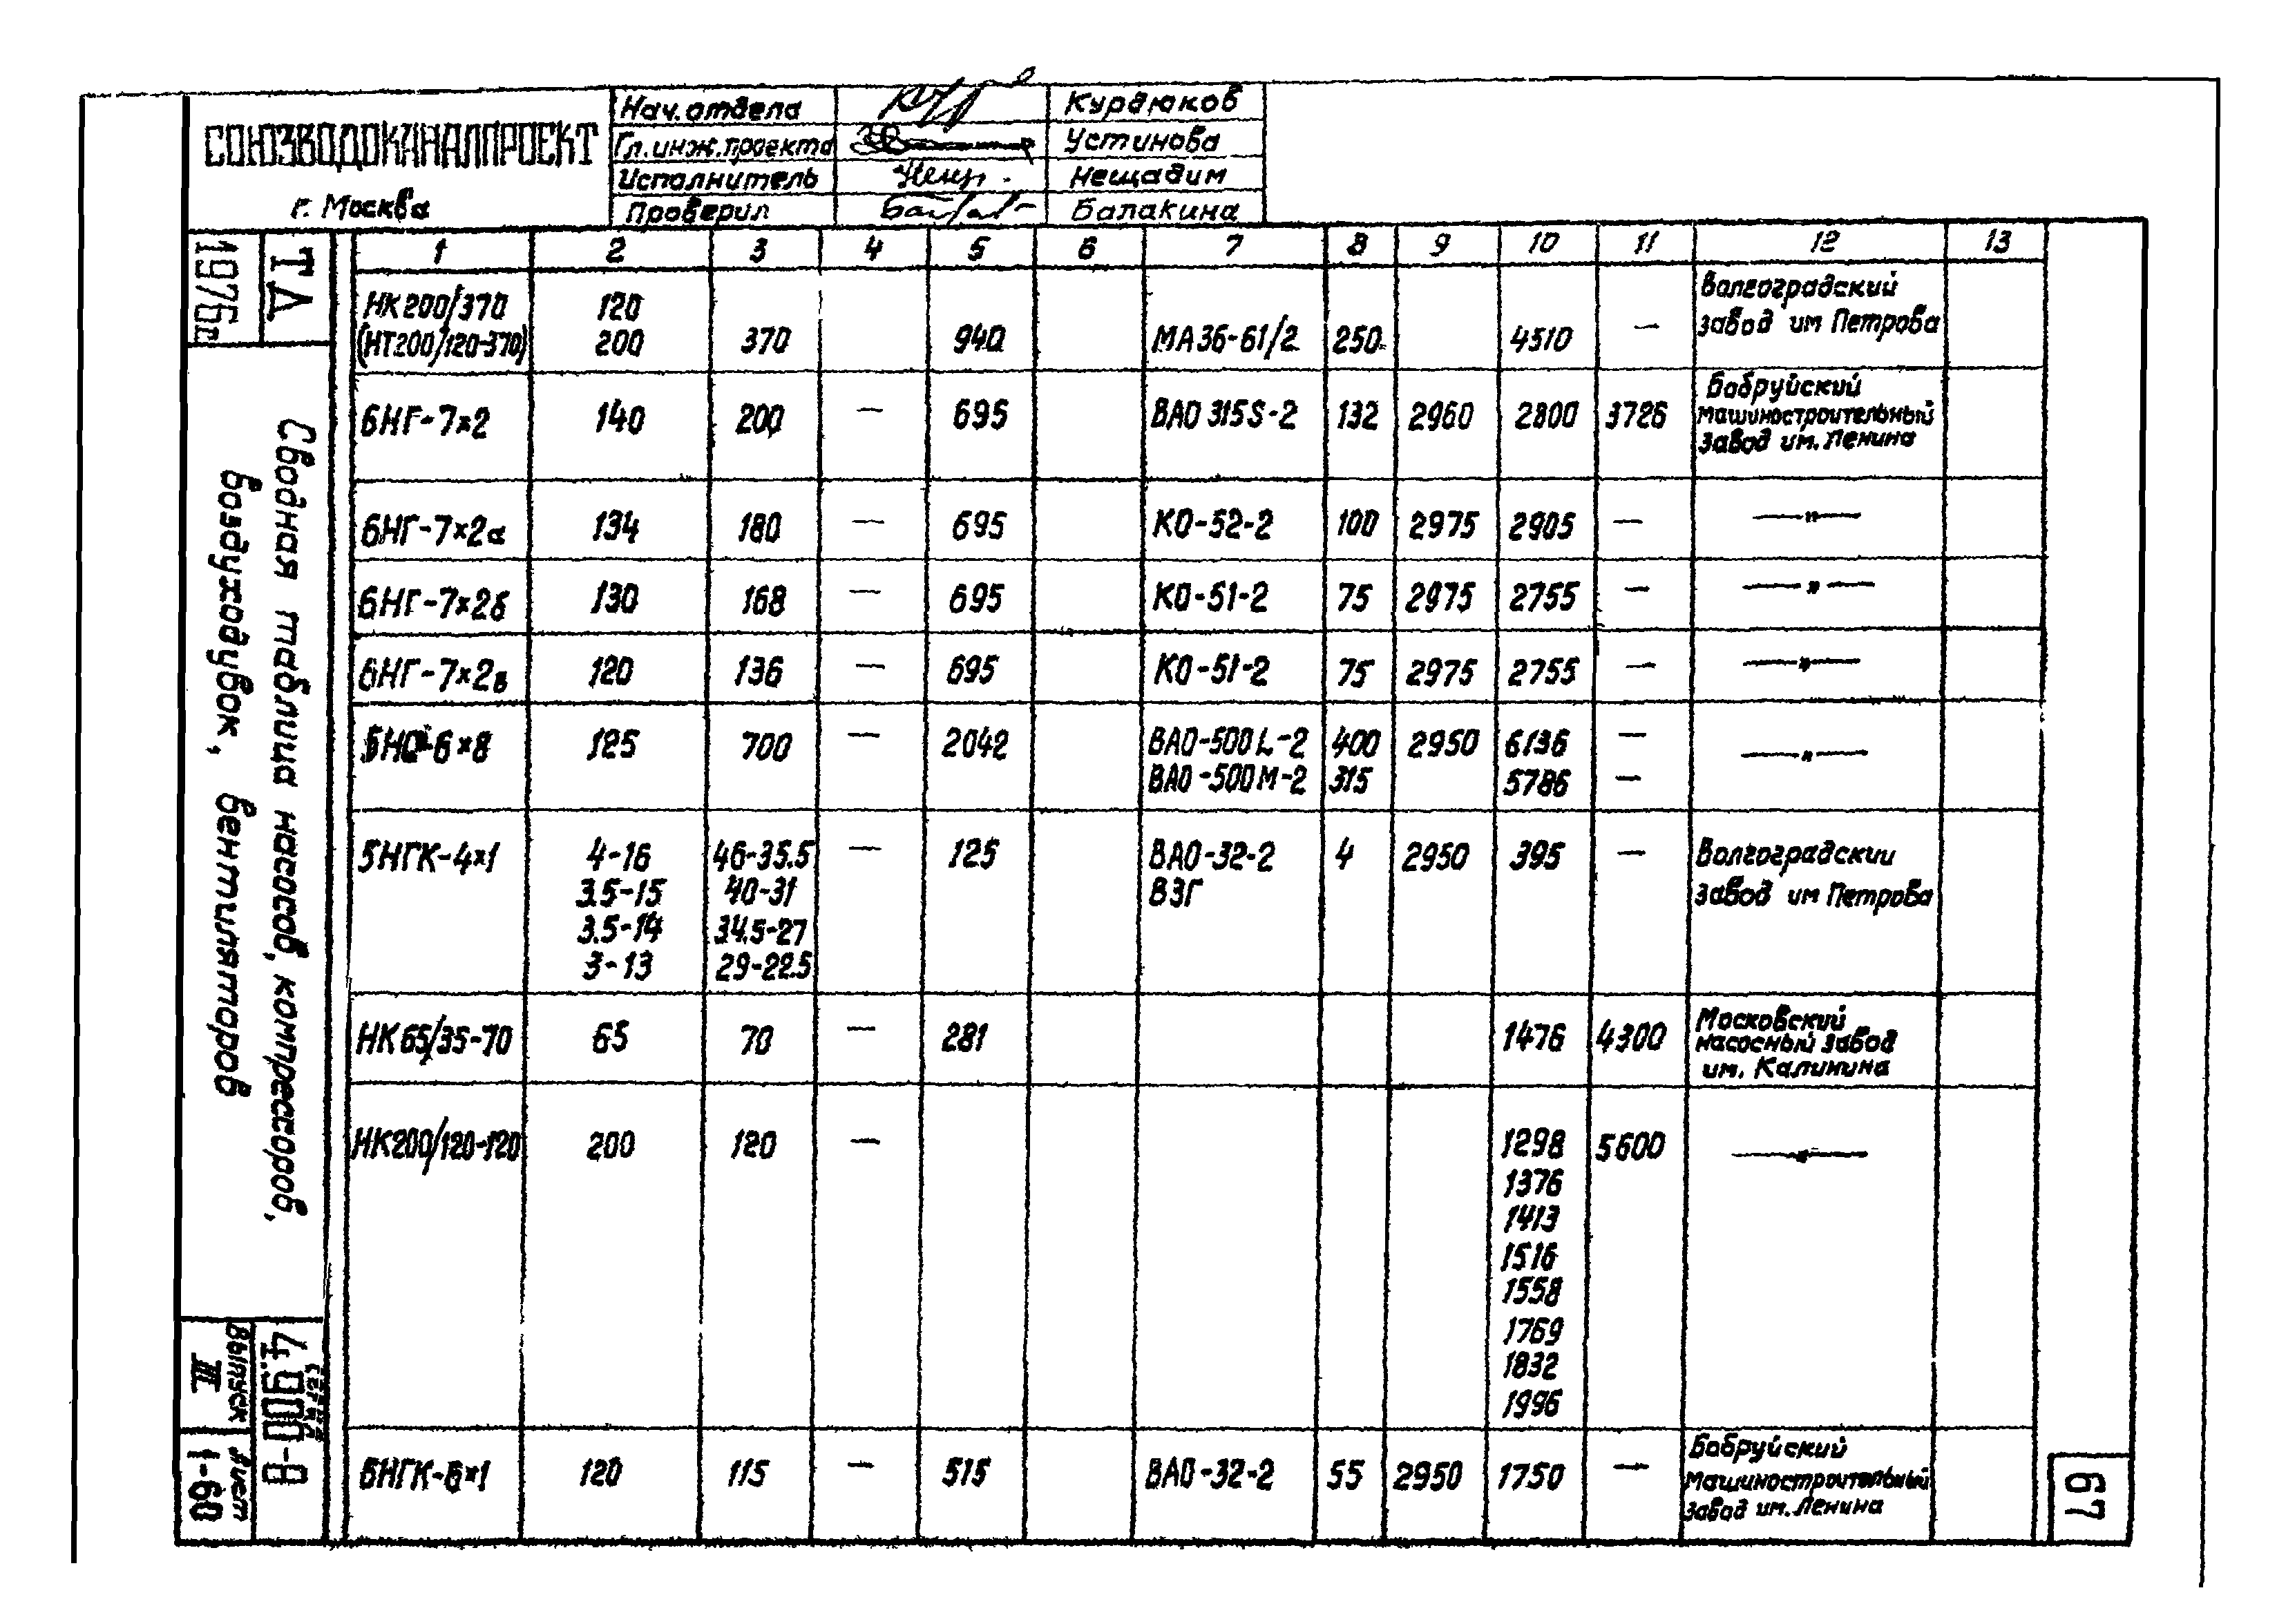 СОЮЗВОДОКАНАЛПРОЕКТ
г. Москва
Нач. отдела Курдюков
Гл. инж. проекта Устинова
Исполнитель Нещадим
Проверил Балакина
1976г.
ТД
Сводная таблица насосов, компрессоров,
воздуходувок, вентиляторов
Серия
4.900-8
Выпуск
III
Лист
1-60
1 2 3 4 5 6 7 8 9 10 11 12 13
НК 200/370 120 Волгоградский
(НТ200/120-370) 200 370 940 МА36-61/2 250 4510 — завод им Петрова
6НГ-7×2 140 200 — 695 ВАО 315S-2 132 2960 2800 3726 Бобруйский
машиностроительный
завод им. Ленина
6НГ-7×2а 134 180 — 695 КО-52-2 100 2975 2905 — —"—
6НГ-7×2б 130 168 — 695 КО-51-2 75 2975 2755 — —"—
6НГ-7×2в 120 136 — 695 КО-51-2 75 2975 2755 — —"—
125 700 — 2042 ВАО-500L-2 400 2950 6136 — —"—
ВАО-500М-2 315 5786 —
5НГК-4×1 4-16 46-35.5 — 125 ВАО-32-2 4 2950 395 — Волгоградскии
3.5-15 40-31 ВЗГ завод им Петрова
3.5-14 34.5-27
3-13 29-22.5
НК 65/35-70 65 70 — 281 1476 4300 Московский
насосный завод
им. Калинина
НК200/120-120 200 120 — 1298 5600 —"—
1376
1413
1516
1558
1769
1832
1996
6НГК-6×1 120 115 — 515 ВАО-32-2 55 2950 1750 — Бобруйский
машиностроительный
завод им. Ленина
67